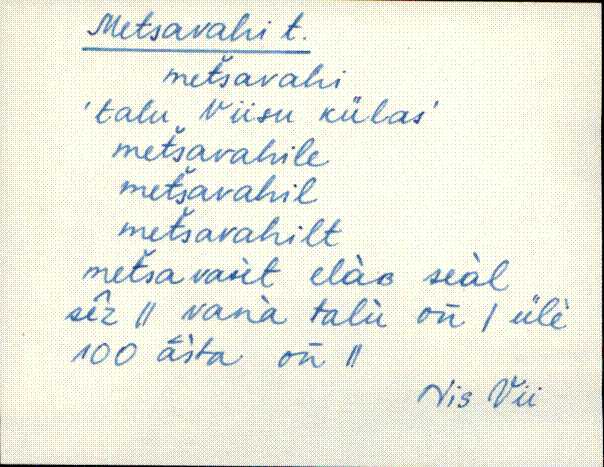 Metsavahi t.
met̆savahi
'talu Viisu külas'
met̆savahile
met̆savahil
met̆savahilt
met̆savasìt elàʙ seàl
sêz || vanà talù on̄ / ülè
100 āsta on̄ ||
Vii